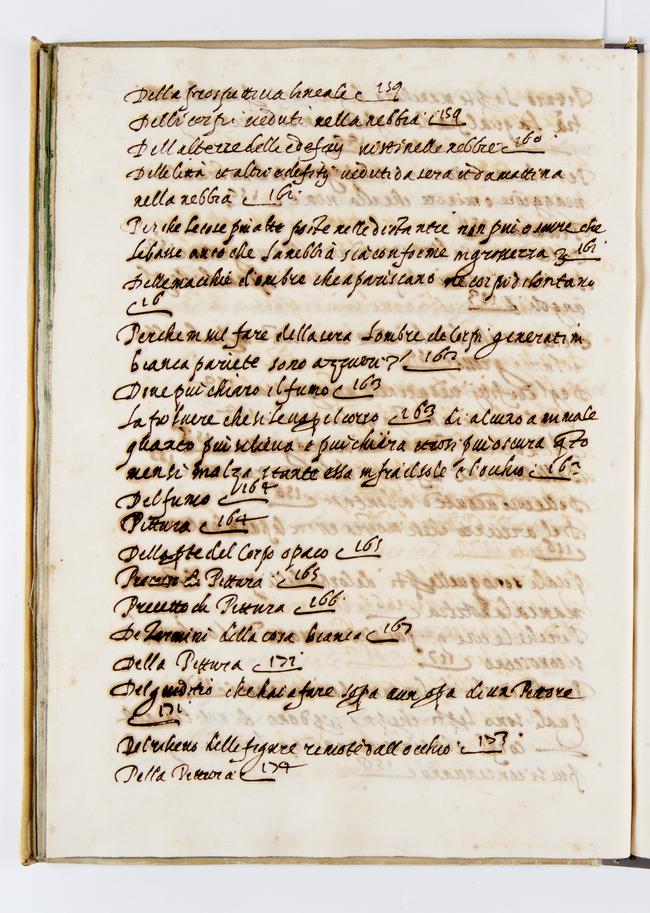 Della prospettiua lineale c 159
Delli corpi ueduti nella nebbia c 159
Dell altezze delle edefitij uisti nelle nebbie c 160
Delle Città et altri edefitij ueduti da sera et da mattina
nella nebbia c 161
Perche le cose piu alte poste nelle distantie non piu oscure che
le basse anco che la nebbia sia conforme in grossezza c 161
Delle macchie d'ombre che apariscano ne corpi di lontano
c 16
Perche in sul fare della sera l ombre de Corpi generati in
bianca pariete sono azzurri c 162
Doue piu chiaro il fumo c 163
La poluere che si leua pel corso c 163 di alcuno animale
quanto piu si lieua è piu chiara et cosi piu oscura qto
meno si inalza stante essa infra il sole e l occhio c 163
Del fumo c 164
Pittura c 164
Della pte del Corpo opaco c 165
Precetto di Pittura c 165
Precetto di Pittura c 166
De Termini della cosa bianca c 167
Della Pittura c 171
Del giuditio che hai a fare sopa un opa di un Pittore
c 171
Del rilieuo delle figure remote dall occhio c 173
Della Pittura c 174